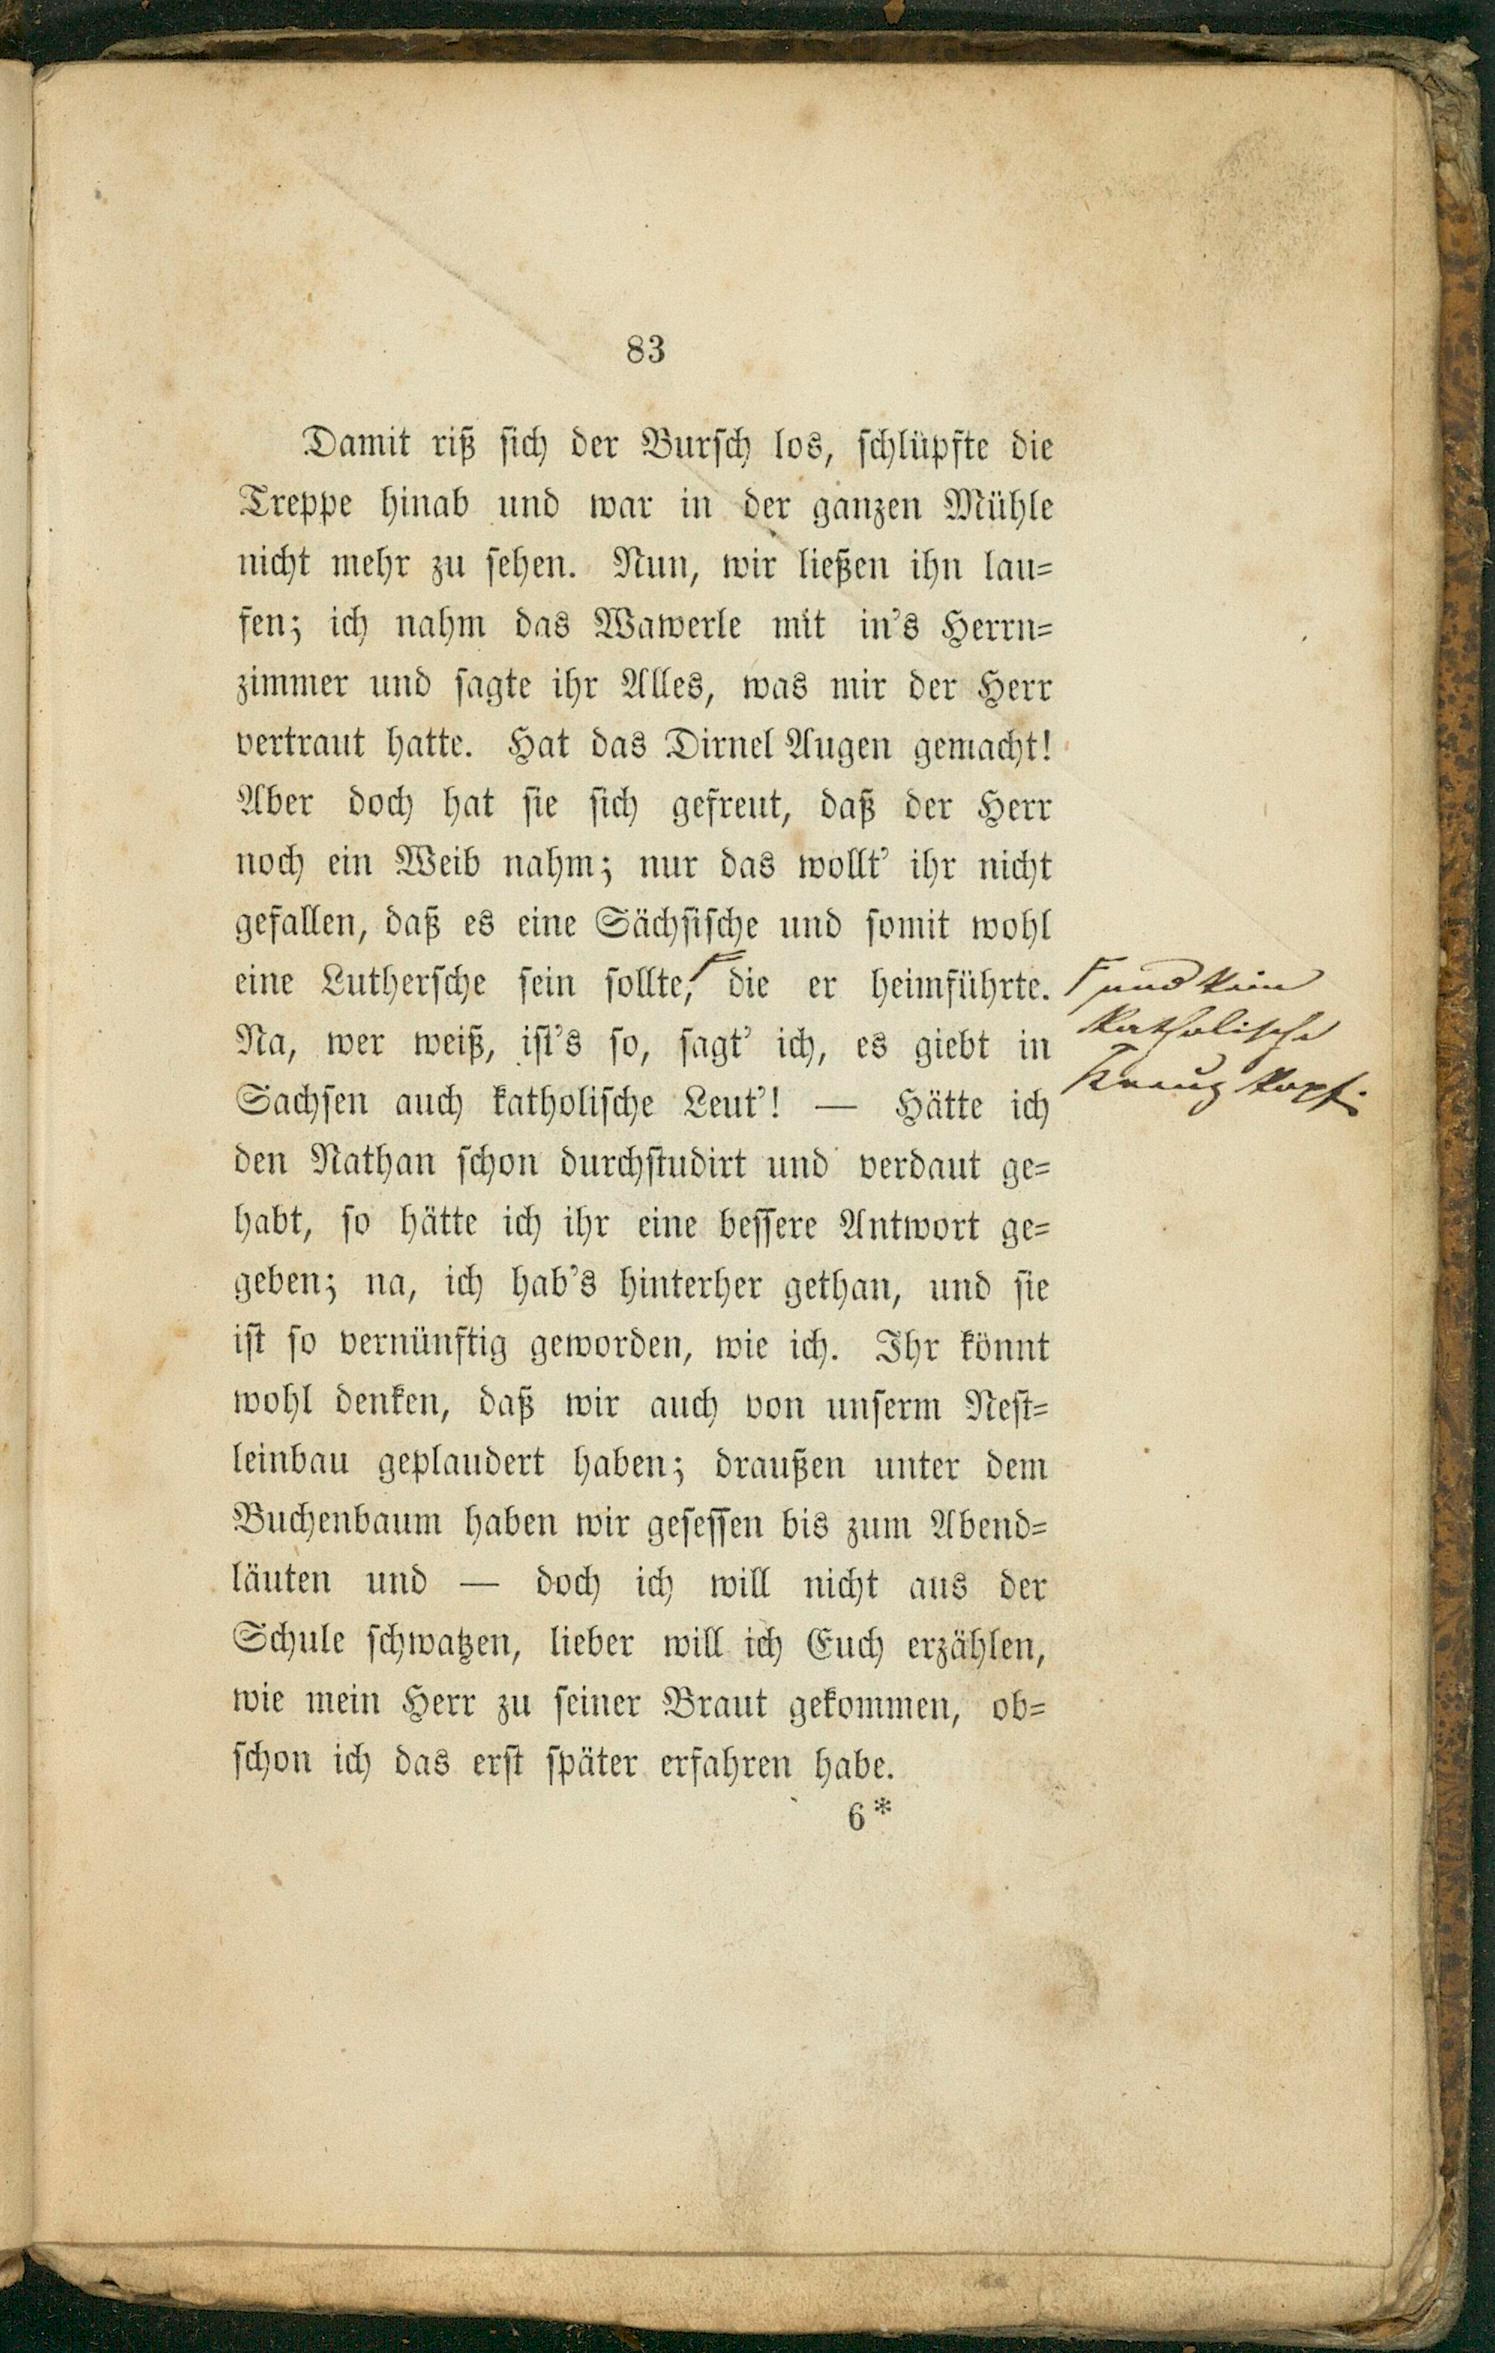 83
Damit riß sich der Bursch los, schlüpfte die
Treppe hinab und war in der ganzen Mühle
nicht mehr zu sehen. Nun, wir ließen ihn lau=
fen; ich nahm das Wawerle mit in's Herrn=
zimmer und sagte ihr Alles, was mir der Herr
vertraut hatte. Hat das Dirnel Augen gemacht!
Aber doch hat sie sich gefreut, daß der Herr
noch ein Weib nahm; nur das wollt' ihr nicht
gefallen, daß es eine Sächsische und somit wohl
eine Luthersche sein sollte, die er heimführte.
und kein
katholische
Kreuzkopf.
Na, wer weiß, ist's so, sagt' ich, es giebt in
Sachsen auch katholische Leut'! — Hätte ich
den Nathan schon durchstudirt und verdaut ge=
habt, so hätte ich ihr eine bessere Antwort ge=
geben; na, ich hab's hinterher gethan, und sie
ist so vernünftig geworden, wie ich. Ihr könnt
wohl denken, daß wir auch von unserm Nest=
leinbau geplaudert haben; draußen unter dem
Buchenbaum haben wir gesessen bis zum Abend=
läuten und — doch ich will nicht aus der
Schule schwatzen, lieber will ich Euch erzählen,
wie mein Herr zu seiner Braut gekommen, ob=
schon ich das erst später erfahren habe.
6*